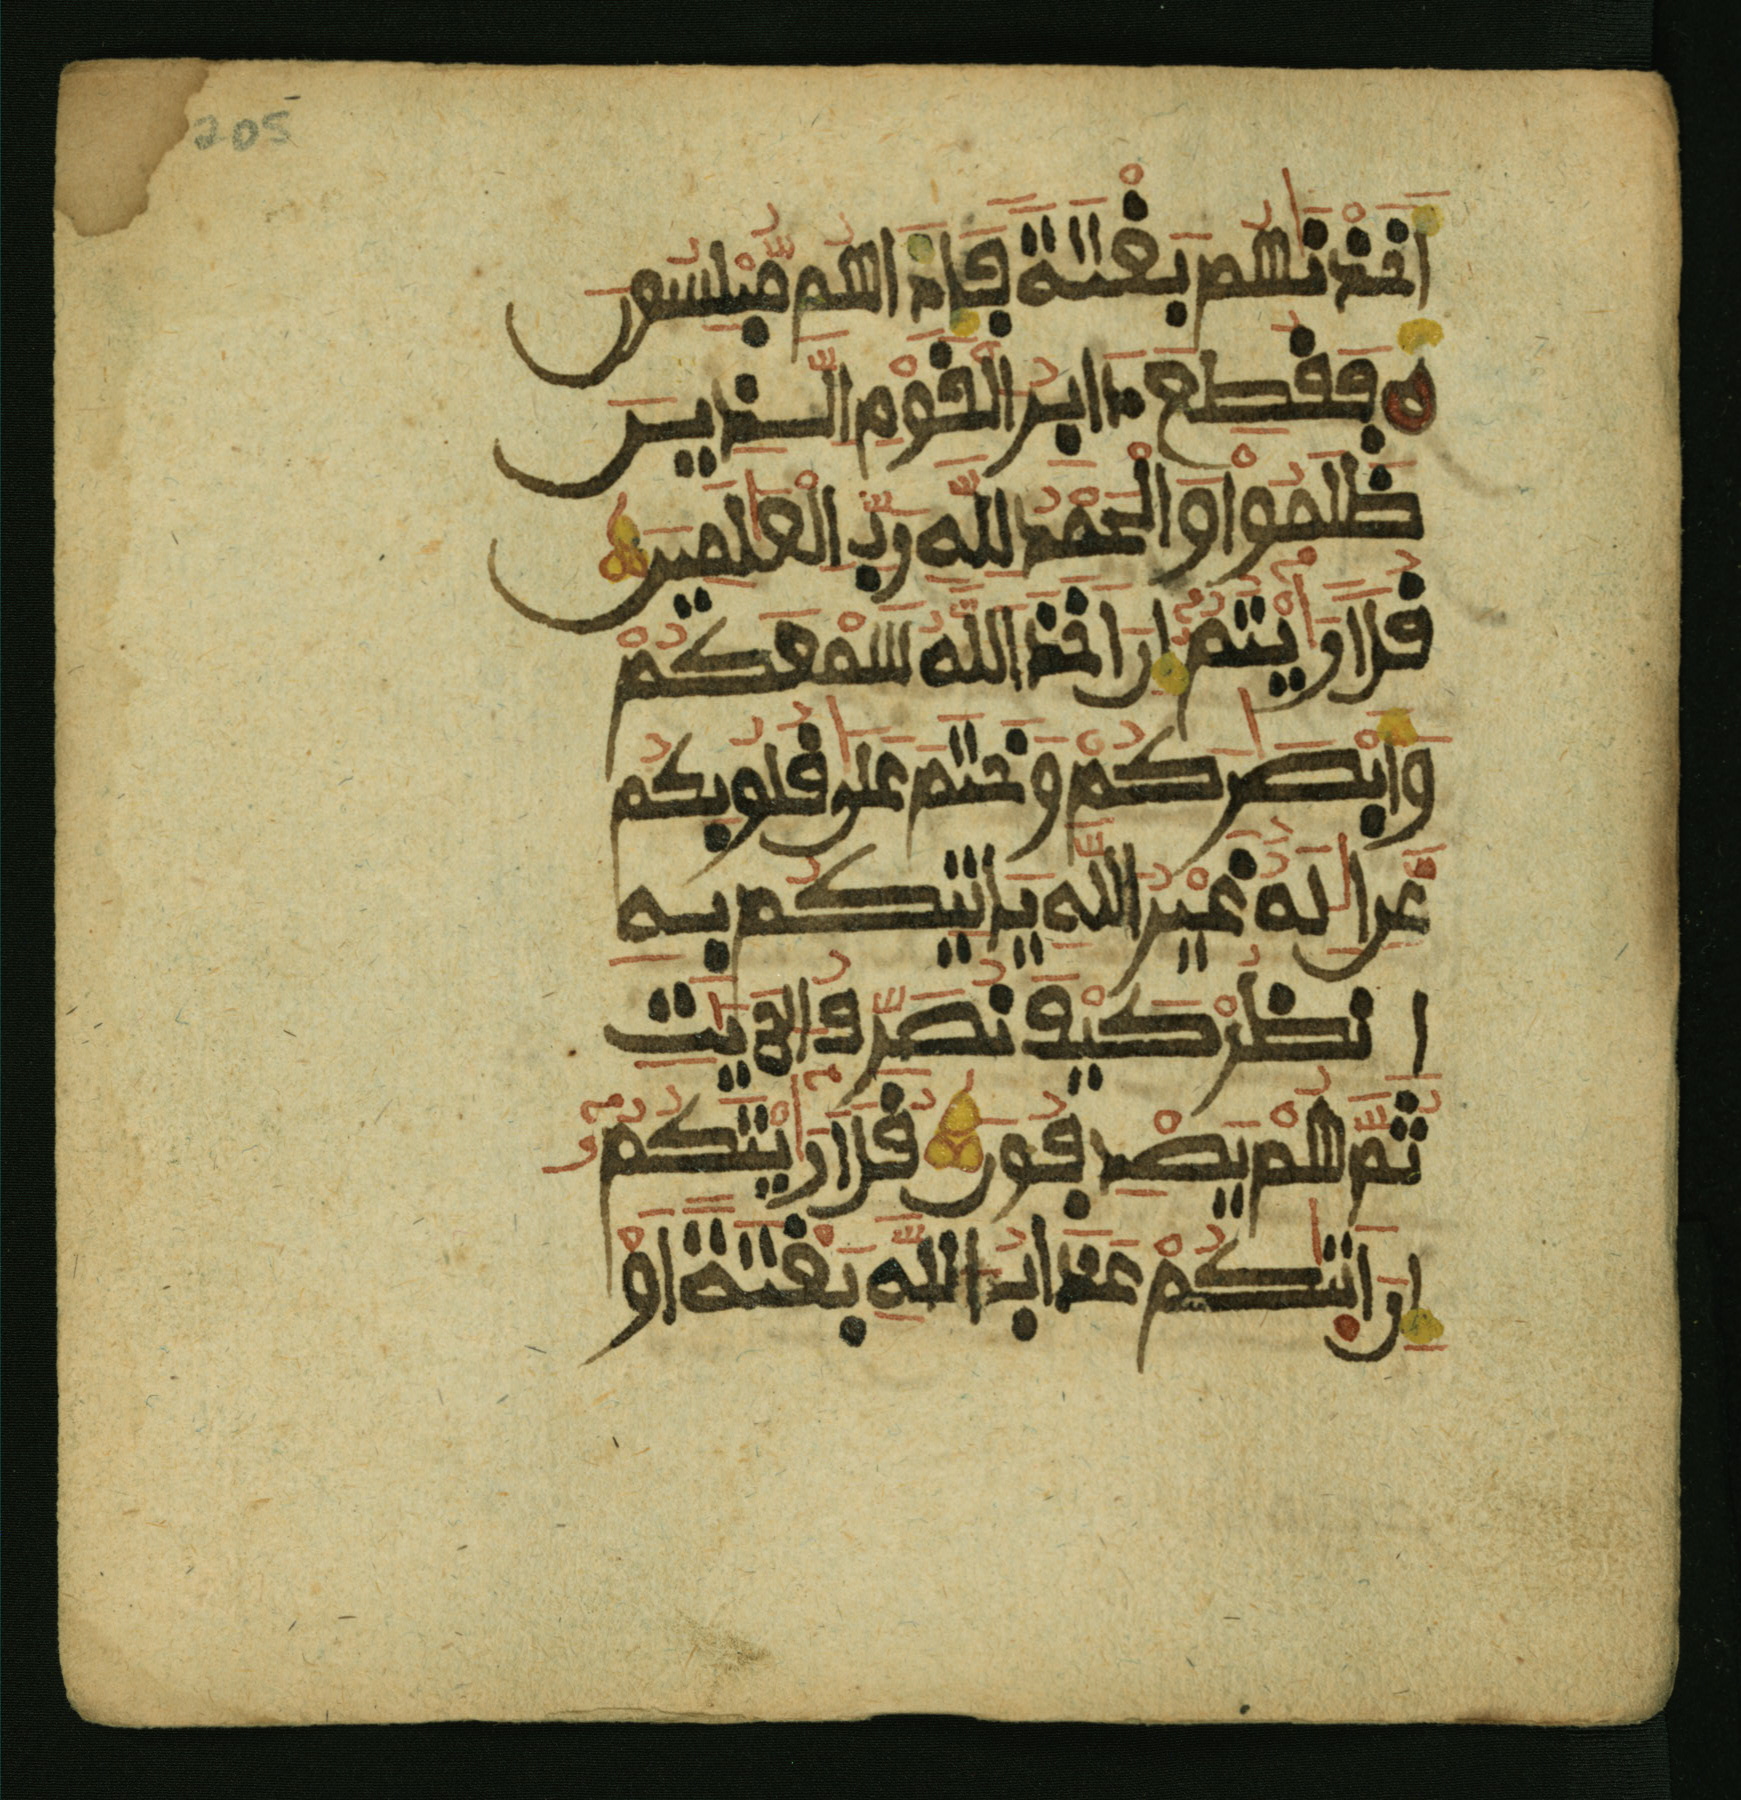 205
اَخَذْنَٰهُم بَغْتَةً فَإِذَا هُم مُّبْلِسُونَ
فَقُطِعَ دَابِرُ الْقَوْمِ الَّذِينَ
ظَلَمُواْ وَالْحَمْدُ لِلَّهِ رَبِّ الْعَٰلَمِينَ
قُلَ اَرَٰيْتُمُ إِنَ اَخَذَ اللَّهُ سَمْعَكُمْ
وَأَبْصَٰرَكُمْ وَخَتَمَ عَلَىٰ قُلُوبِكُم
مَّنِ اِلَٰهٌ غَيْرُ اللَّهِ يَاتِيكُم بِهِ
اِنظُرْ كَيْفَ نُصَرِّفُ الَايَٰتِ
ثُمَّ هُمْ يَصْدِفُونَ قُلَ اَرَٰيْتَكُمُ
إِنَ اَتَيٰكُمْ عَذَابُ اللَّهِ بَغْتَةً اَوْ